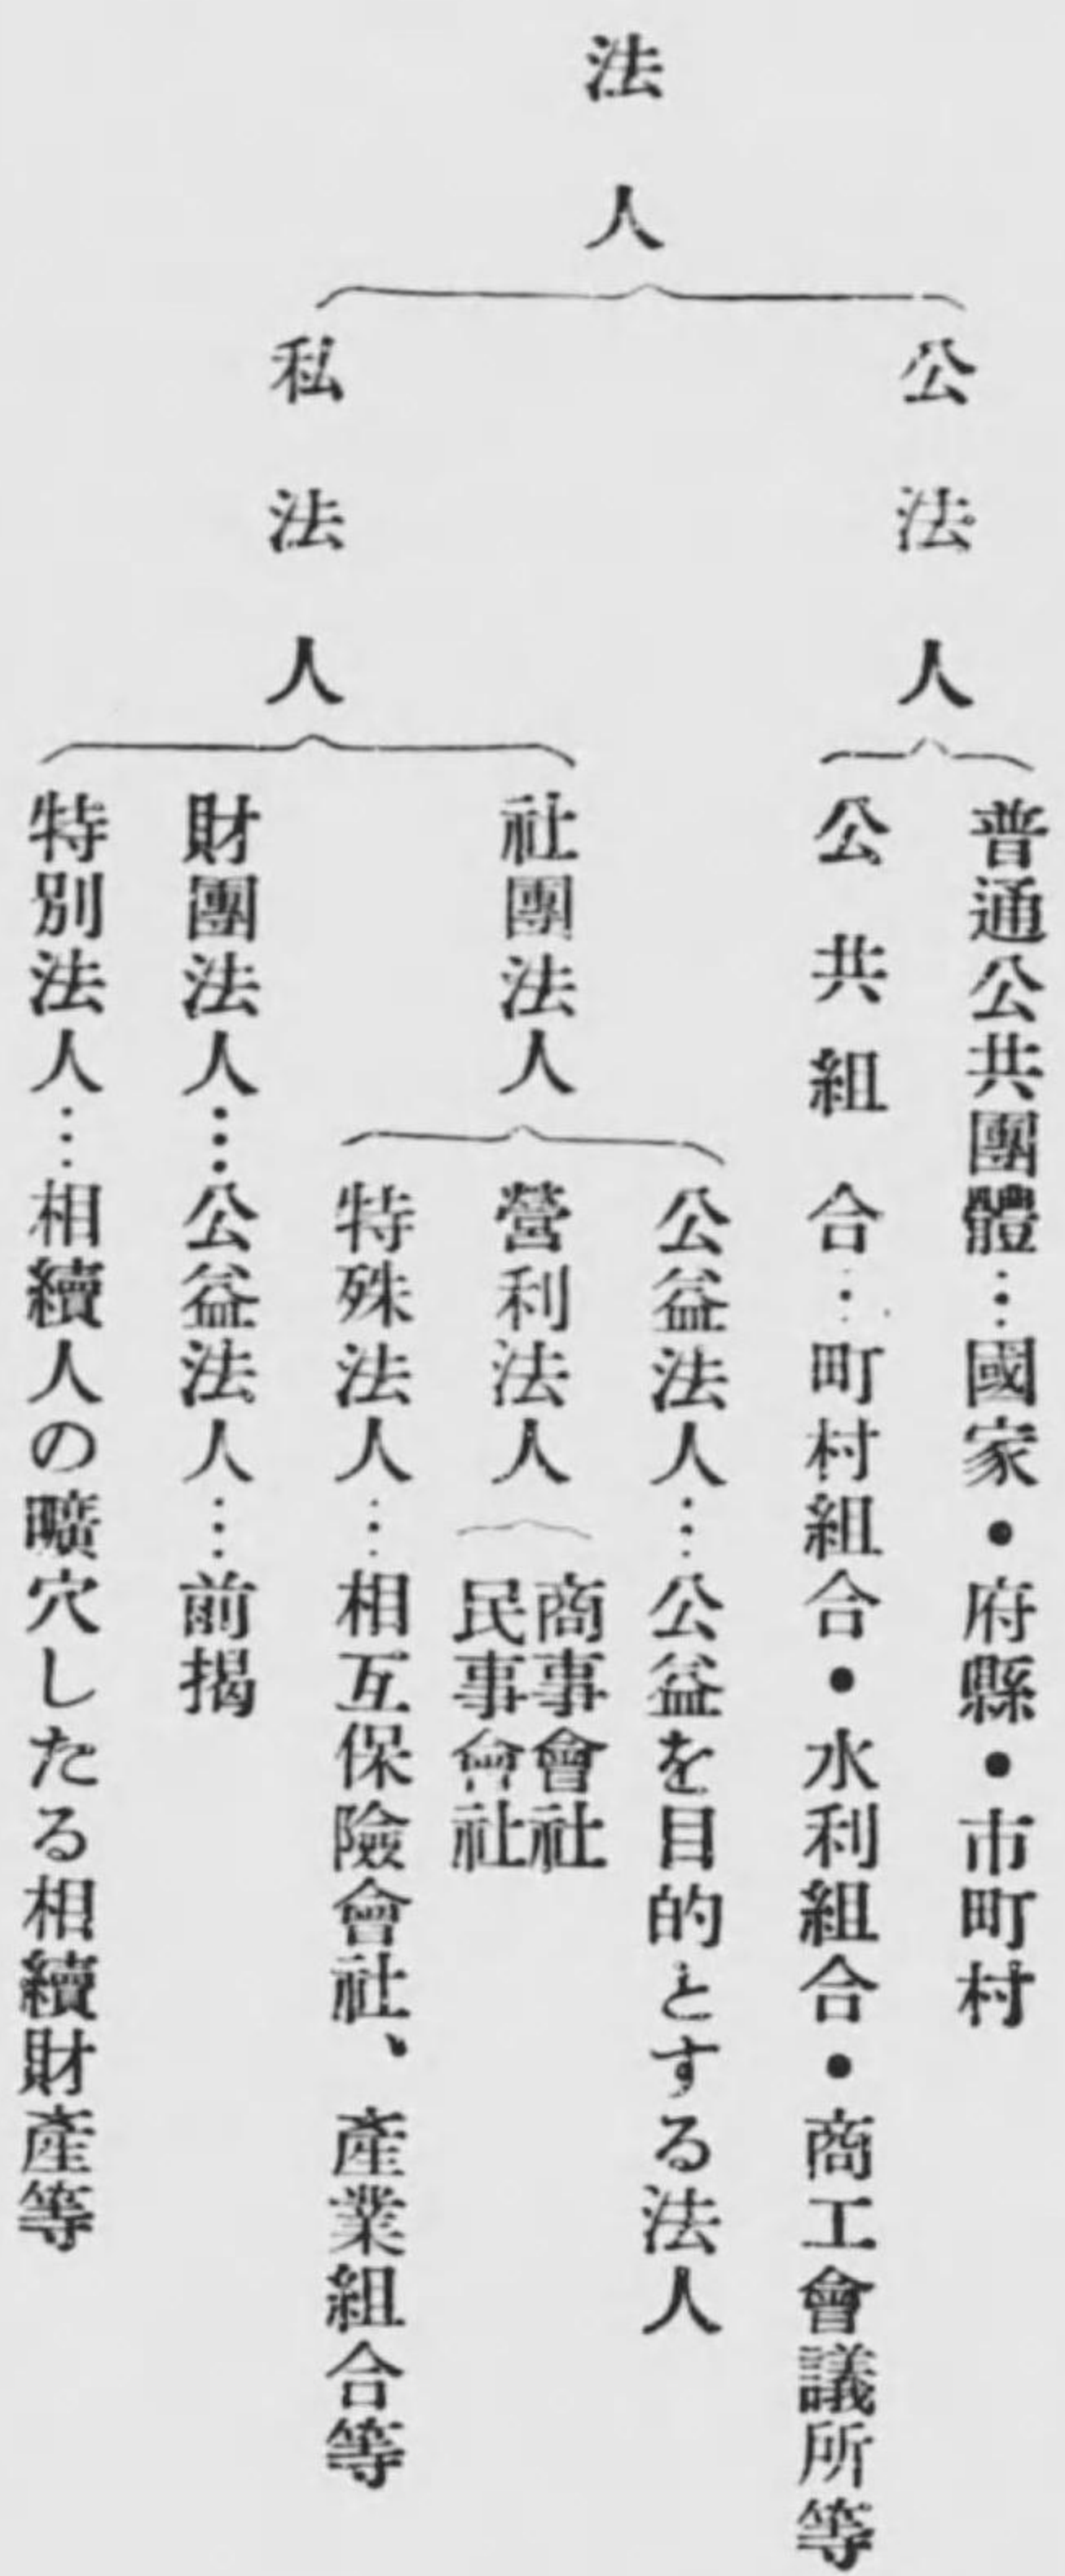 法人
公法人
普通公共團體…國家・府縣・市町村
公共組合…町村組合・水利組合・商工會議所等
私法人
社團法人
公益法人…公益を目的とする法人
營利法人
商事會社
民事會社
特殊法人…相互保險會社、產業組合等
財團法人…公益法人…前揭
特別法人…相續人の曠穴したる相續財產等